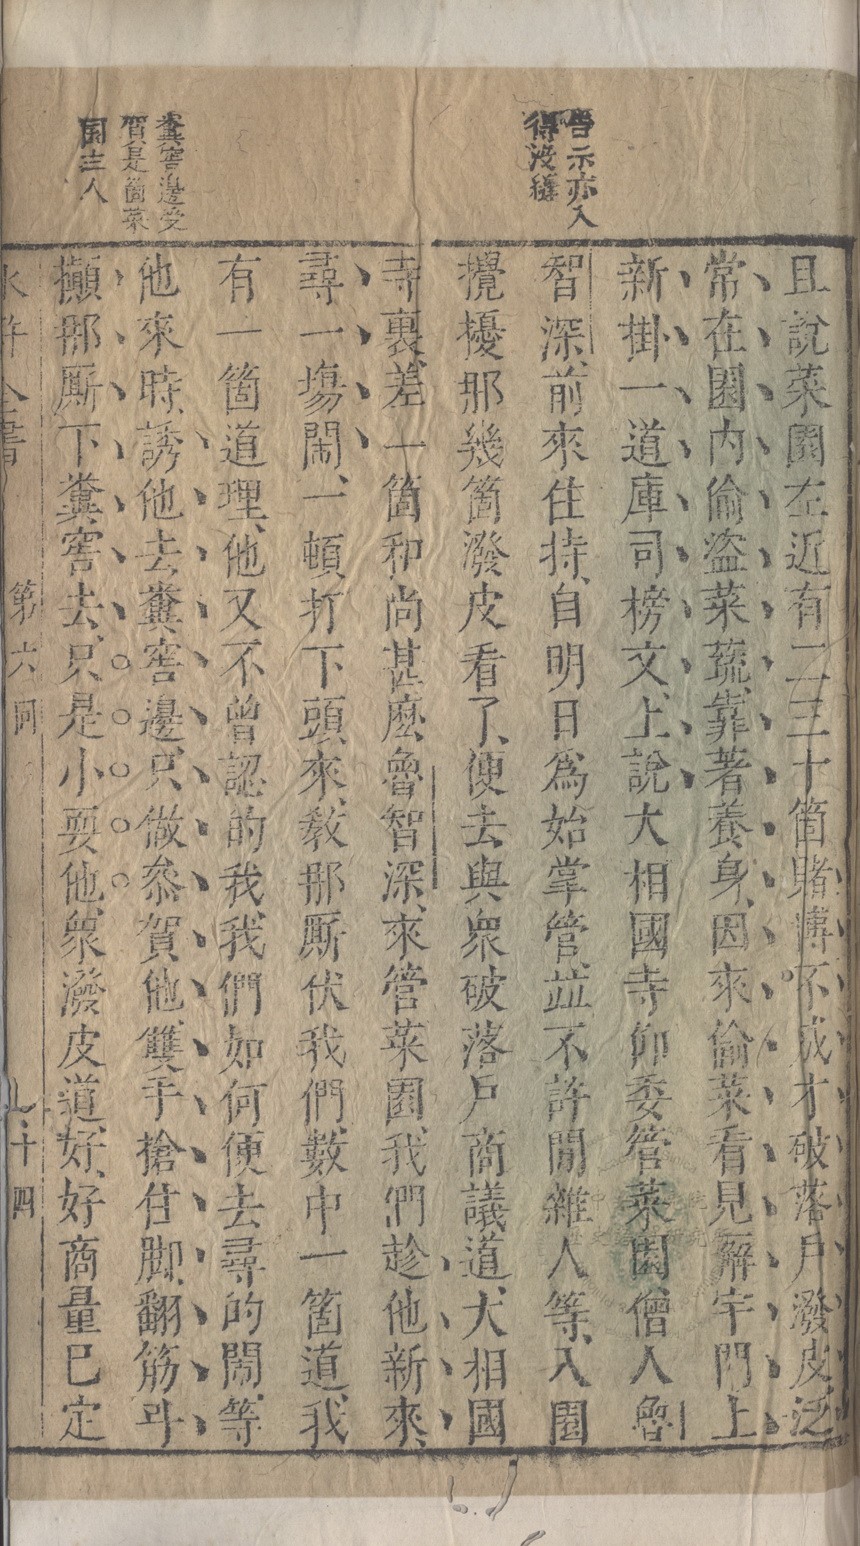 告示亦入
得沒縫
糞窖邊受
賀是箇菜
園主人
且說菜園左近有二三十箇賭博不成才破落戶潑皮泛
常在園内偷盜菜蔬靠著養身因來偷菜看見廨宇門上
新掛一道庫司榜文上說大相國寺仰委管菜園僧人魯
智深前來住持自明日為始掌管並不許閒雜人等入園
攪擾那幾箇潑皮看了便去與衆破落戶商議道大相國
寺裏差一箇和尚甚麽魯智深來管菜園我們趁他新來
尋一塲鬧一頓打下頭來教那厮伏我們數中一箇道我
有一箇道理他又不曾認的我我們如何便去尋的鬧等
他來時誘他去糞窖邊只做叅賀他雙手搶住脚翻筋斗
攧那厮下糞窖去只是小耍他衆潑皮道好好商量已定
水滸全書
第六回
十四